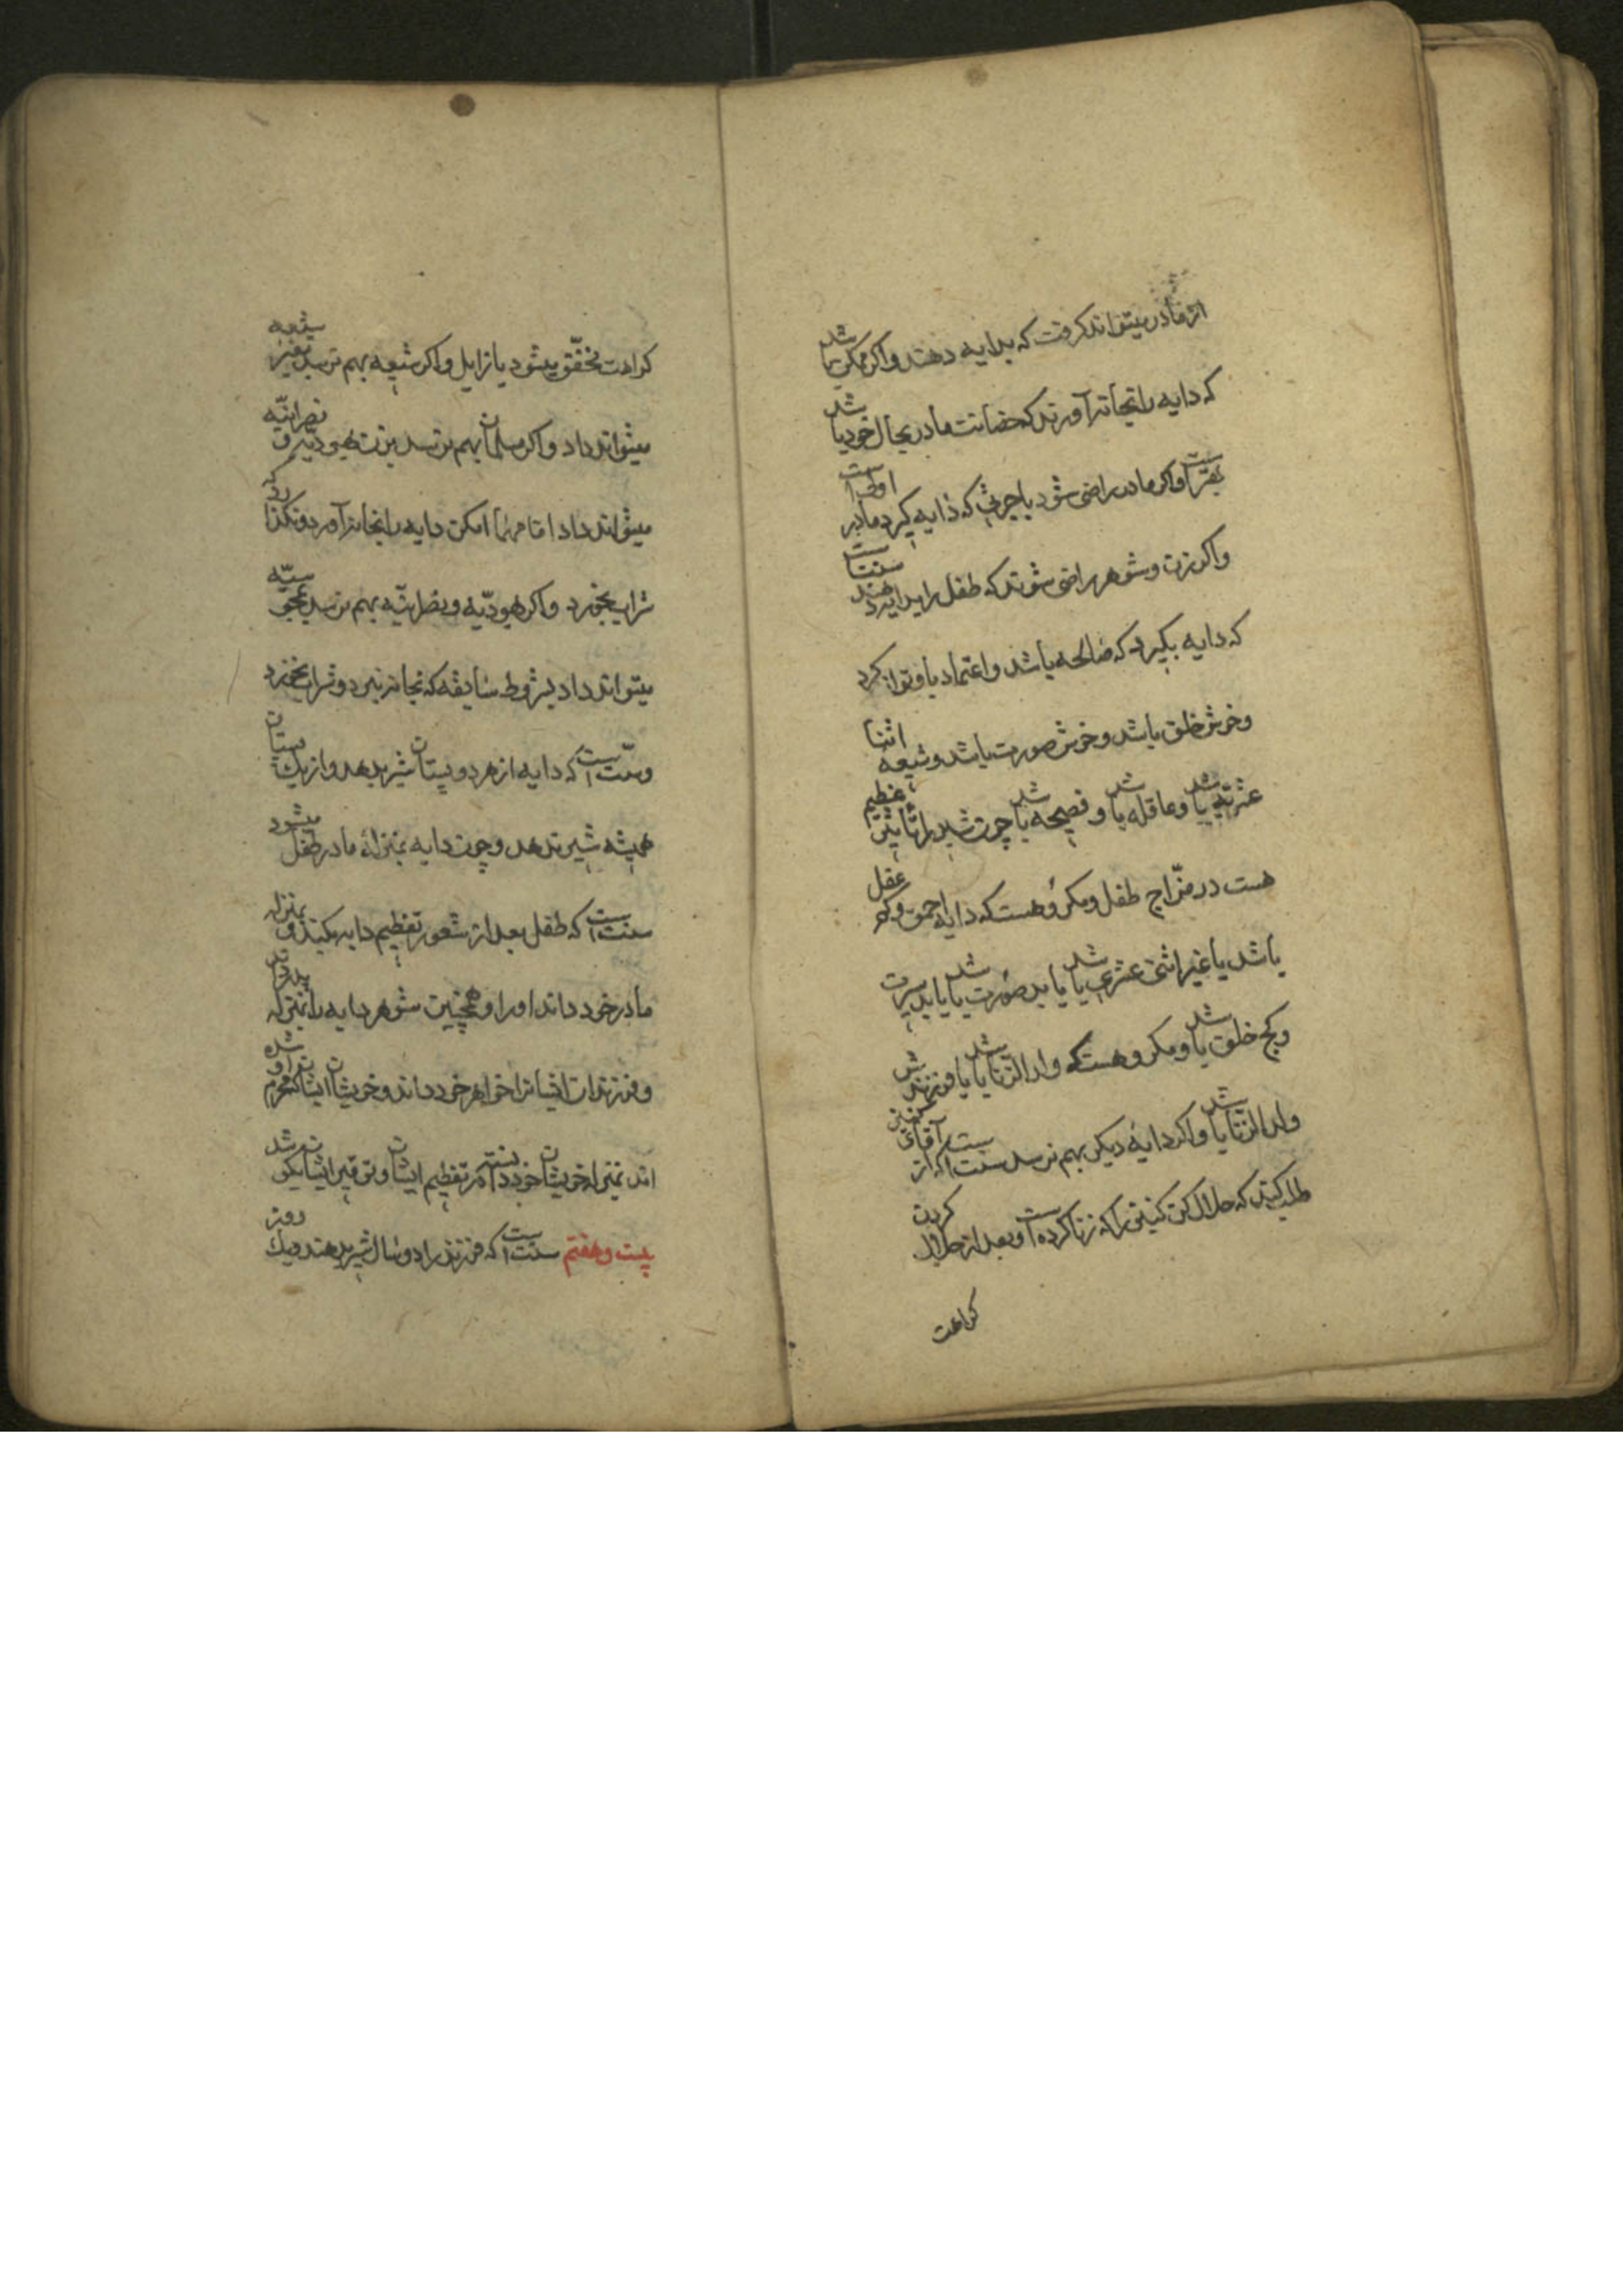 از مادر میتواند کرفت که بدایه دهند و اکر ممکن باشد
که دایه را بخانه آورند که حضانت مادر بحال خود باشد
بهتر است و اکر مادر راضی شود باجرتی که دایه کیرد مادر اولی است
و اکر زن و شوهر راضی شوند که طفل را بدایه دهند سنت است
که دایه بکیرد که صالحه باشد و اعتماد باو توان کرد
و خوش خلق باشد و خوش صورت باشد و شیعهٔ اثنا
عشریه باشد و عاقله باشد و فصیحه باشد چون شیر را تاثیری عظیم
هست در مزاج طفل و مکروهست که دایه احمق و کم عقل
باشد یا غیر اثنی عشری باشد یا بد صورت باشد یا بد سیرت
و کج خلق باشد و مکروهست که ولد الزنا باشد یا فرزندش
ولد الزنا باشد و اکر دایهٔ دیکر بهم نرسد سنت است که از آقای کنیز
طلب کنند که حلال کن کنیزی را که زنا کرده است و بعد از حلال کردن
کراهت
کراهت مخفّف میشود یا زایل و اکر شیعه بهم نرسد بغیر شیعه
میتواند داد و اکر مسلمان بهم نرسد بزن یهودیه و نصرانیّه
میتواند داد اما مهما امکن دایه را بخانه آورد و نکذارد که
شراب بخورد و اکر یهودیّه و نصرانیّه بهم نرسد بمجوسیّه
میتواند داد بشروط سابقه که بخانه نبرد و شراب نخورد
و سنّت است که دایه از هر دو پستان شیر بدهد و از یک پستان
همیشه شیر ندهد و چون دایه بمنزلهٔ مادر طفل میشود
سنت است که طفل بعد از شعور تعظیم دایه بکند و بمنزله
مادر خود داند او را و همچنین شوهر دایه را بمنزله پدر داند
و فرزندان ایشانرا خواهر خود داند و خویشان ایشان که محرم شده
اند بمنزله خویشان خود دانسته در تعظیم ایشان و توقیر ایشان بکوشد
بیست و هفتم سنت است که فرزند را دو سال شیر بدهند و یک روز